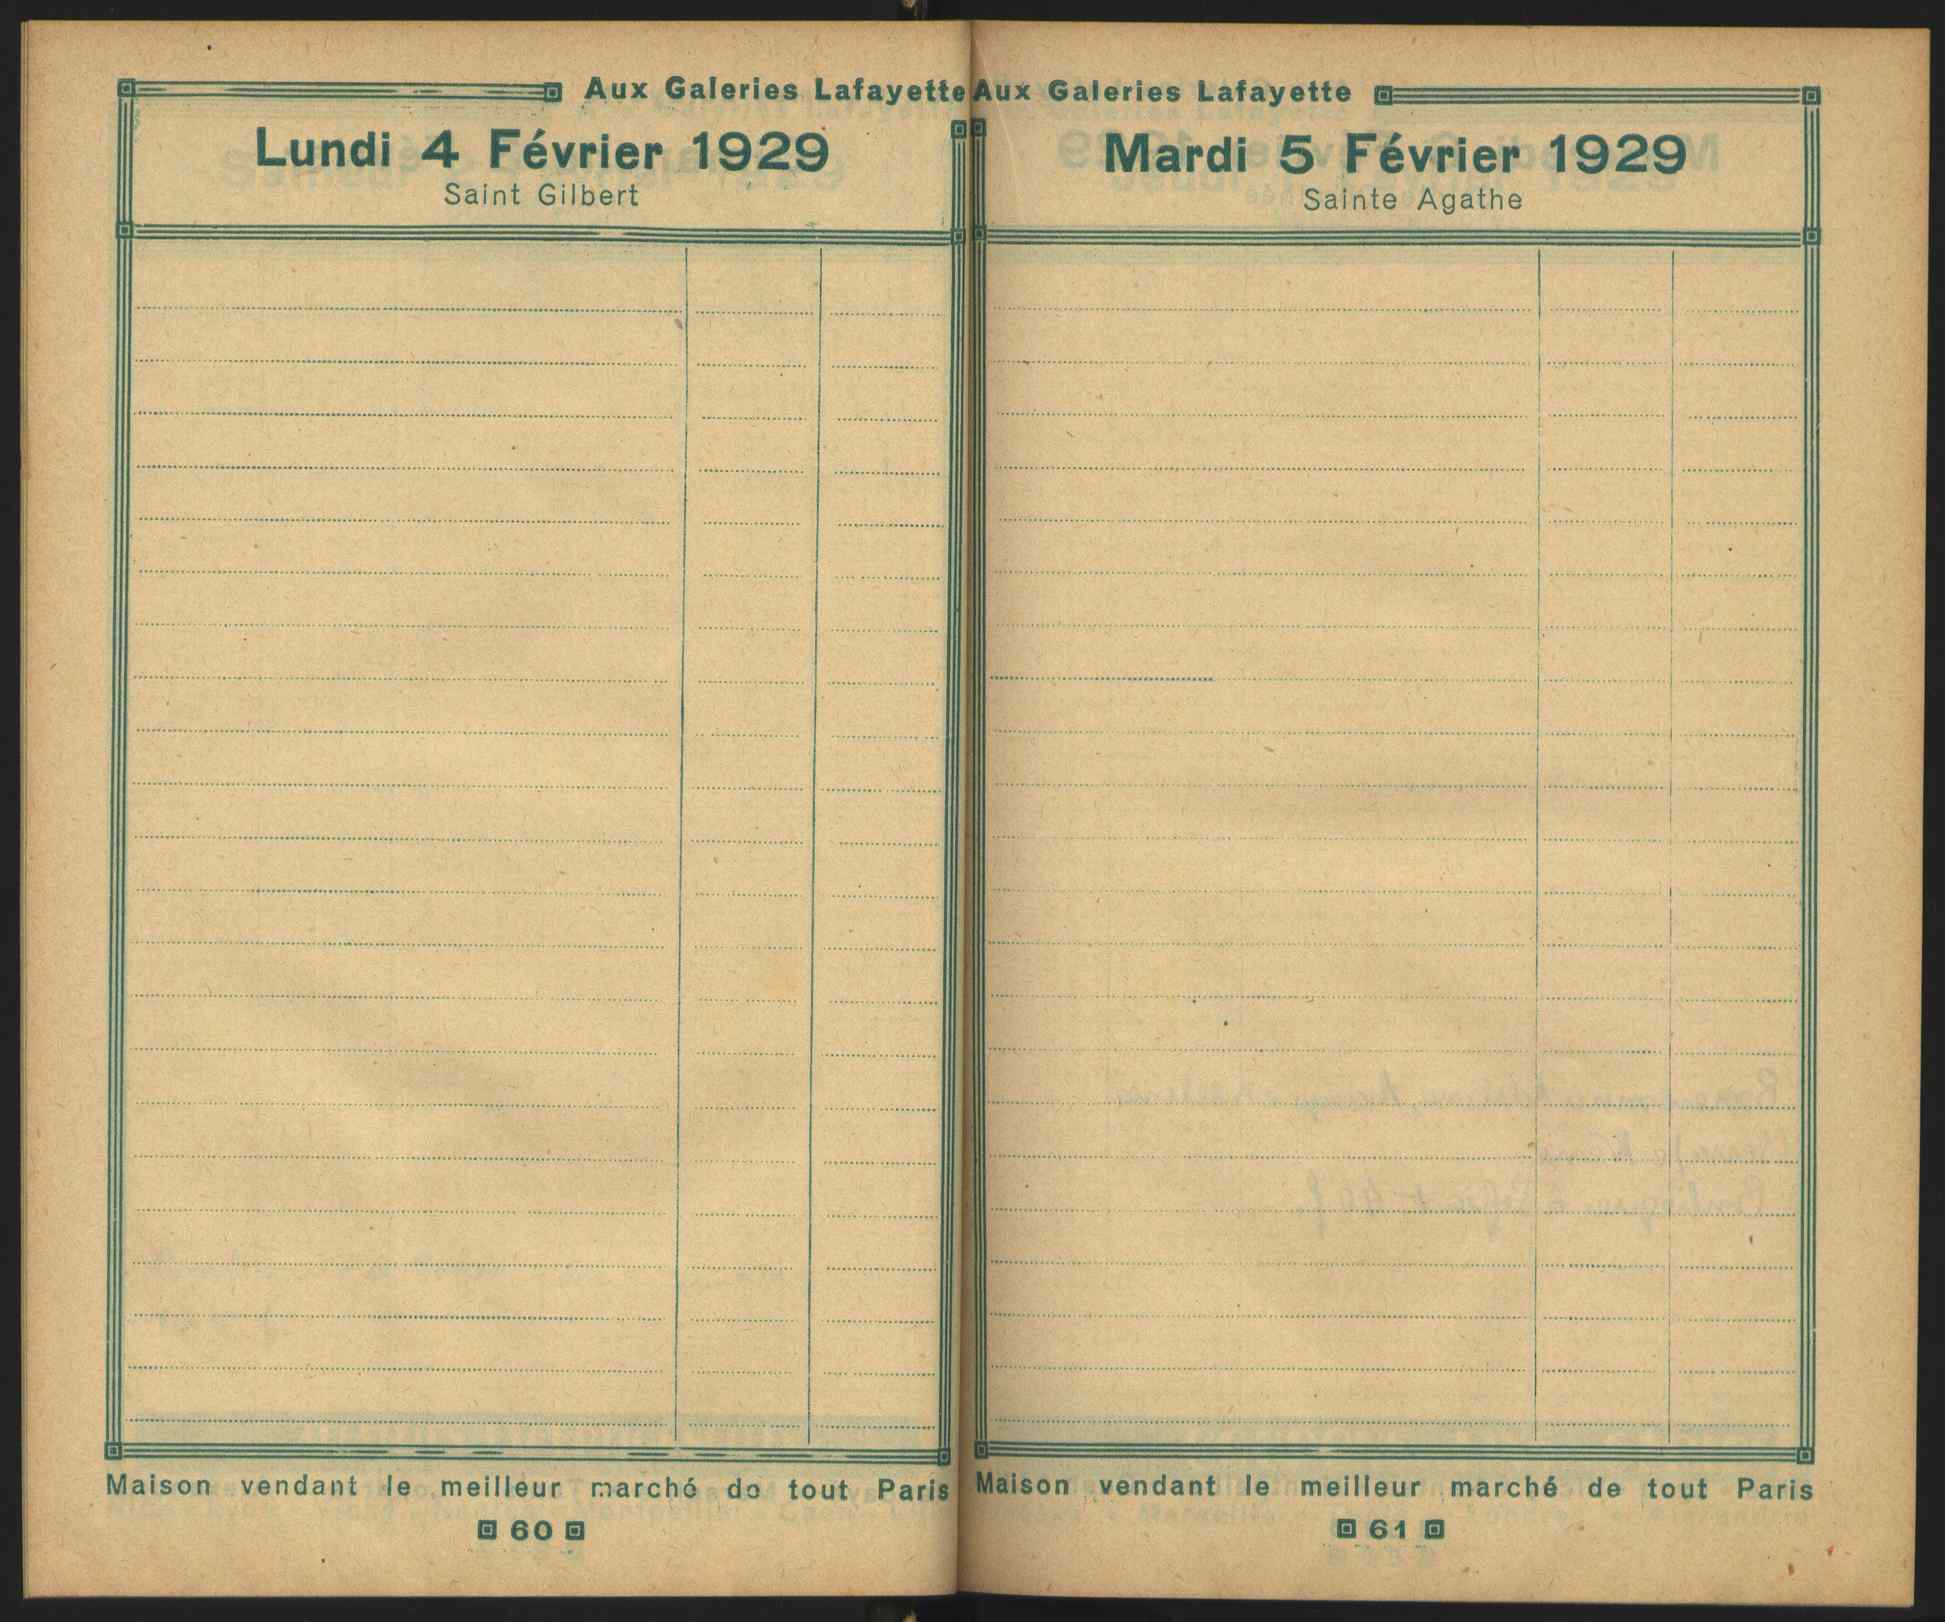 Aux Galeries Lafayette
Lundi 4 Février 1929
Saint Gilbert
Maison vendant le meilleur marché de tout Paris
60
Aux Galeries Lafayette
Mardi 5 Février 1929
Sainte Agathe
Maison vendant le meilleur marché de tout Paris
61